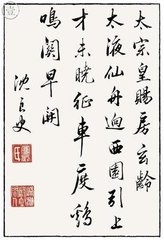 太宗皇賜房玄齡
太液仙舟迥西園引上
才未曉征車度鷄
鳴關早開
沈良史